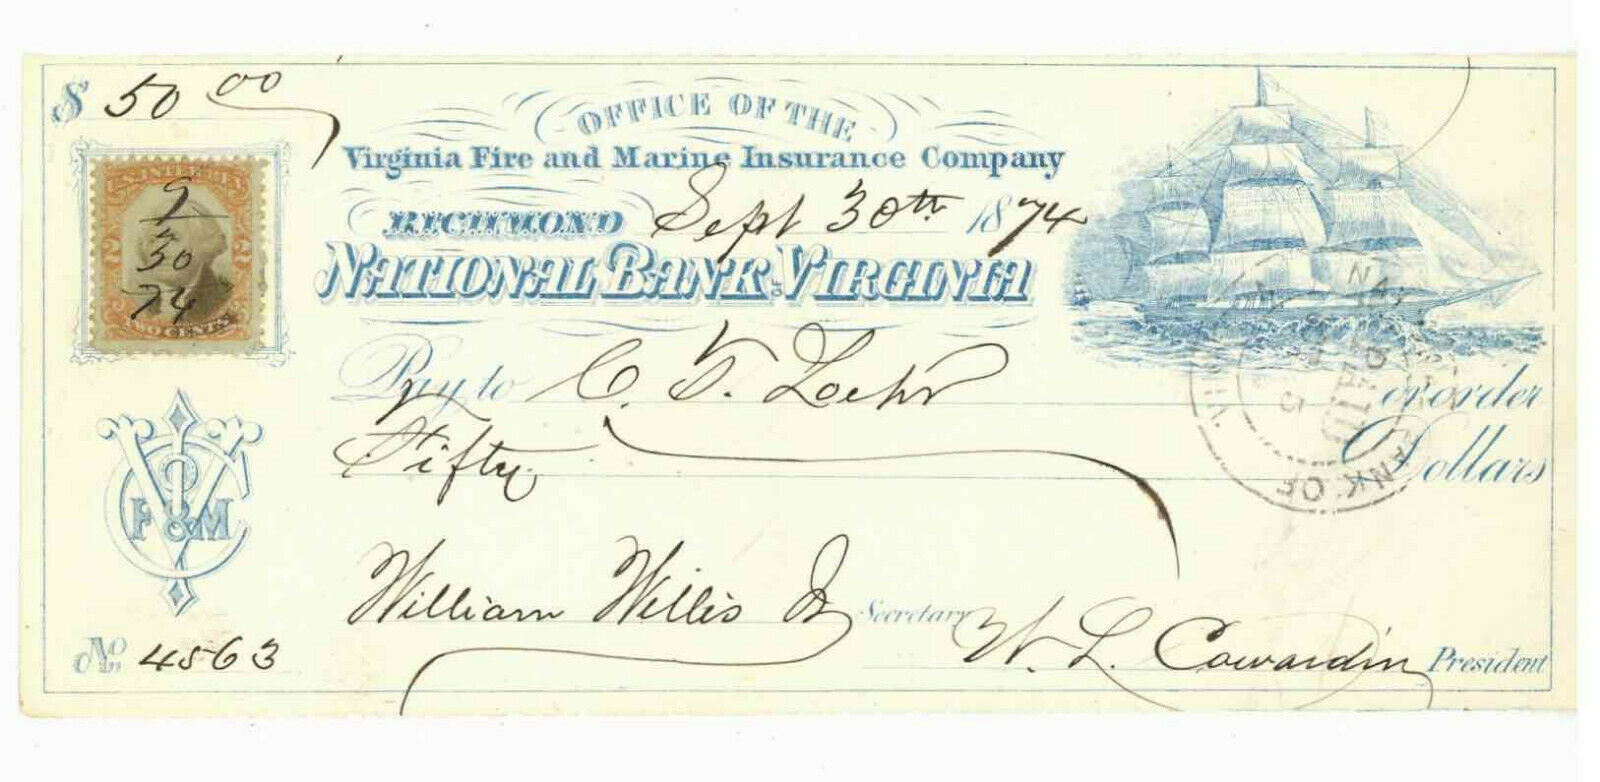 $ 50 00
OFFICE OF THE
Virginia Fire and Marine Insurance Company
RICHMOND Sept 30th 1874
NATIONAL BANK OF VIRGINIA
U.S. INTER. REV.
2 2
9
30
74
TWO CENTS
Pay to C. T. Loehr or order
Fifty Dollars
VICO
F&M
NATIONAL BANK OF VIRGINIA
PAID
William Willis Jr Secretary W. L. Cowardin President
No. 4563